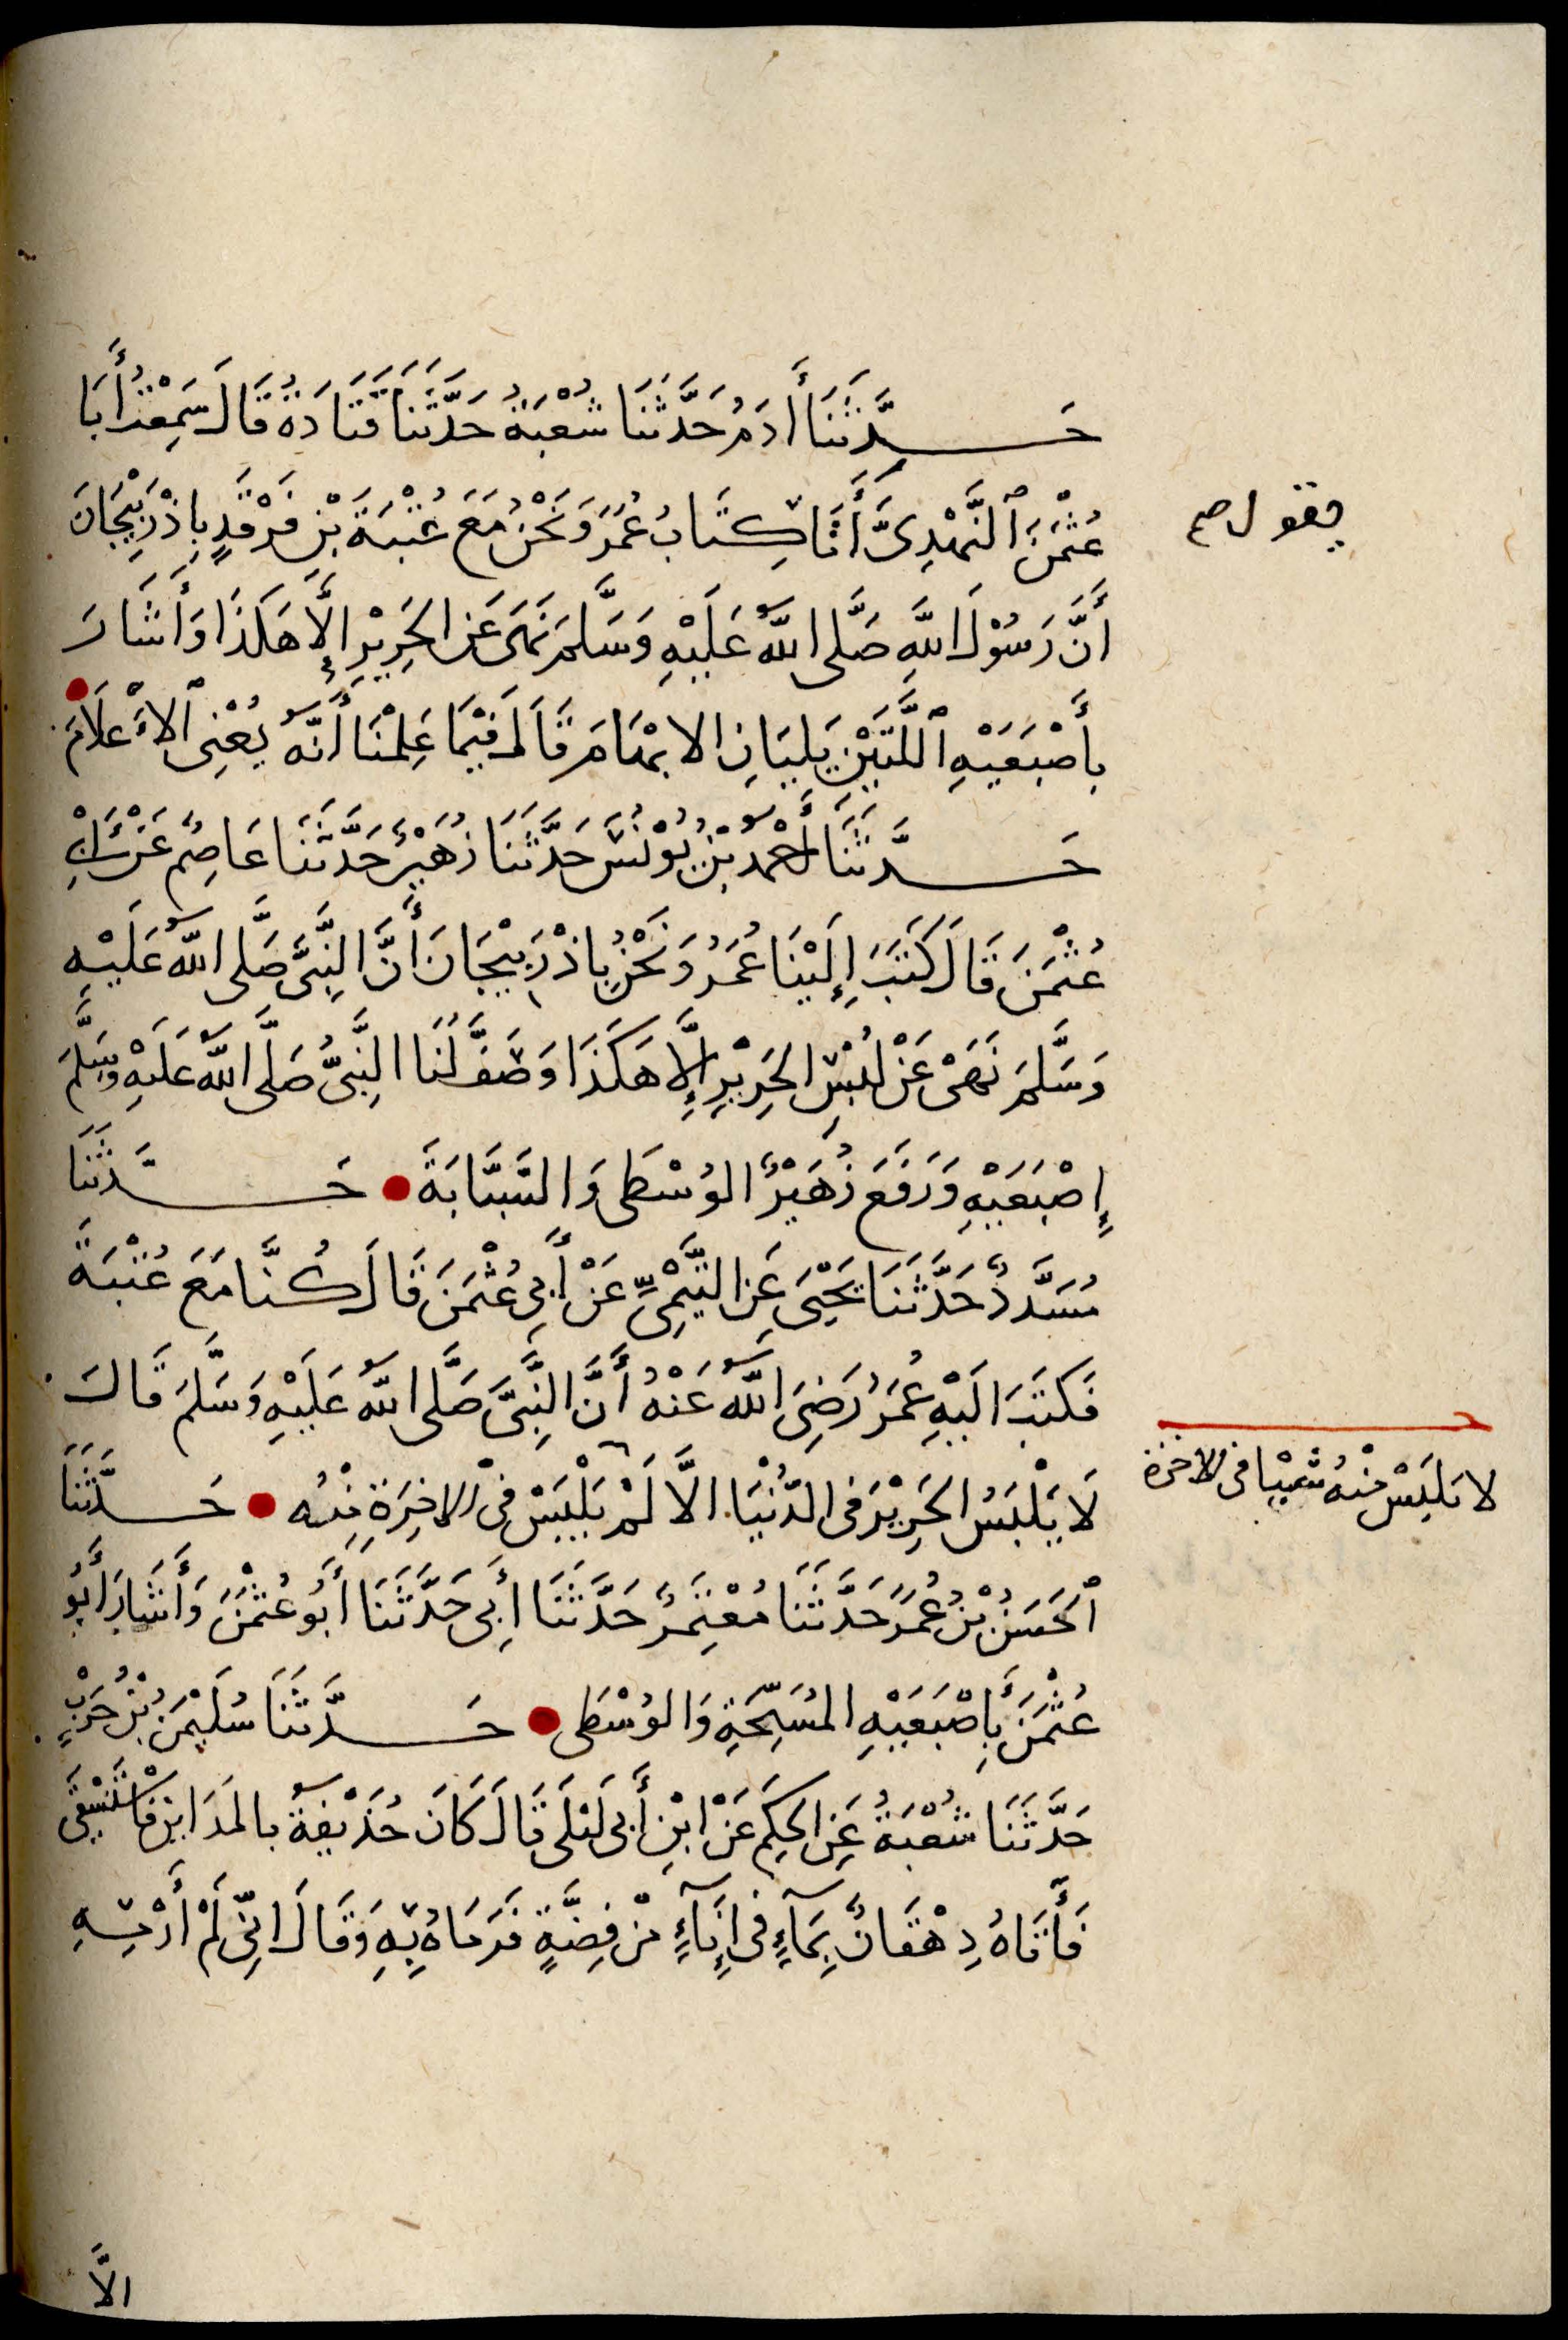 حَدَّثَنَا أَدَمُ حَدَّثَنَا شُعْبَةُ حَدَّثَنَا قَتَادَةُ قَالَ سَمِعْتُ أَبَا
عُثْمٰنَ ٱلنَّهْدِىَّ أَتَانَا كِتَابُ عُمَرَ وَنَحْنُ مَعَ عُتْبَةَ بْنِ فَرْقَدٍ بِاذْرَبِيْجَانَ
يقول صح
أَنَّ رَسُوْلَ اللهِ صَلَّى اللهُ عَلَيْهِ وَسَلَّمَ نَهَى عَنِ الحَرِيْرِ إِلَّا هَكَذَا وَأَشَارَ
بِأَصْبَعَيْهِ ٱللَّتَيْنِ يَلِيَانِ الابْهَامَ قَالَ فِيْمَا عَلِمْنَا أَنَّهُ يَعْنِى ٱلاَعْلَامَ
حَدَّثَنَا أَحْمَدُ بْنُ يُوْنُسَ حَدَّثَنَا زُهَيْرٌ حَدَّثَنَا عَاصِمٌ عَنْ أَبِي
عُثْمٰنَ قَالَ كَتَبَ إِلَيْنَا عُمَرُ وَنَحْنُ بِاذْرَبِيْجَانَ أَنَّ النَّبِيَّ صَلَّى اللهُ عَلَيْهِ
وَسَلَّمَ نَهَىْ عَنْ لُبْسِ الحَرِيْرِ إِلَّا هَكَذَا وَصَفَّ لَنَا النَّبِيُّ صَلَّى اللهُ عَلَيْهِ وَسَلَّمَ
إِصْبَعَيْهِ وَرَفَعَ زُهَيْرٌ الوُسْطَى وَالسَّبَّابَةَ حَدَّثَنَا
مُسَدَّدٌ حَدَّثَنَا يَحْيَى عَنِ التَّيْمِيِّ عَنْ أَبِي عُثْمٰنَ قَالَ كُنَّا مَعَ عُتْبَةَ
فَكَتَبَ الَيْهِ عُمَرُ رَضِيَ اللهُ عَنْهُ أَنَّ النَّبِيَّ صَلَّى اللهُ عَلَيْهِ وَسَلَّمَ قَالَ
لَا يُلْبَسُ الحَرِيْرُ فى الدُّنْيَا الَّا لَمْ يُلْبَسْ فِى الاخِرَةِ مِنْهُ حَدَّثَنَا
لا يلبَسْ مِنْهُ شَيْيا فى الاخرة
ٱلحَسَنُ بْنُ عُمَرَ حَدَّثَنَا مُعْتَمِرٌ حَدَّثَنَا أَبِى حَدَّثَنَا أَبُو عُثْمٰنَ وَأَشَارَ أَبُو
عُثْمٰنَ بِأَصْبَعَيْهِ المُسَبِّحَةِ وَالوُسْطَى حَدَّثَنَا سُلَيْمٰنُ بْنُ حَرْبٍ
حَدَّثَنَا شُعْبَةُ عَنِ الحَكَمِ عَنْ ابْنِ أَبِى لَيْلَى قَالَ كَانَ حُذَيْفَةُ بالمَدَايِنِ فَاسْتَسْقَى
فَأَتَاهُ دِهْقَانٌ بِمَآءٍ فى إِنَآءٍ مْنْ فِضَّةٍ فَرَمَاهُ بِهِ وَقَالَ انِّى لَمْ أَرْمِهِ
الَّا